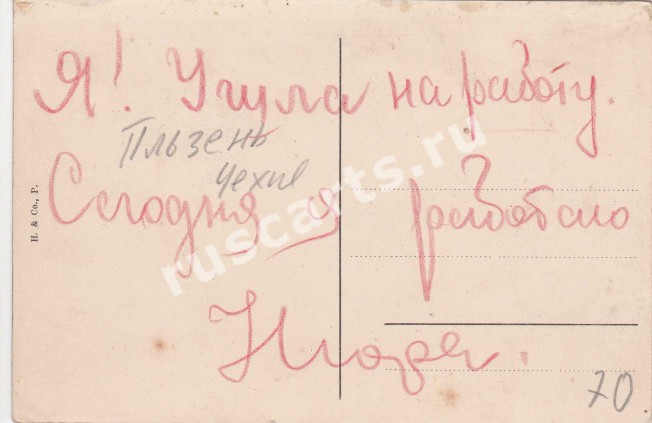 Я! Ушла на работу.
Пльзень
Чехия
Сегодня я работаю
Нюра.
H. & Co., P.
70
ruscarts.ru